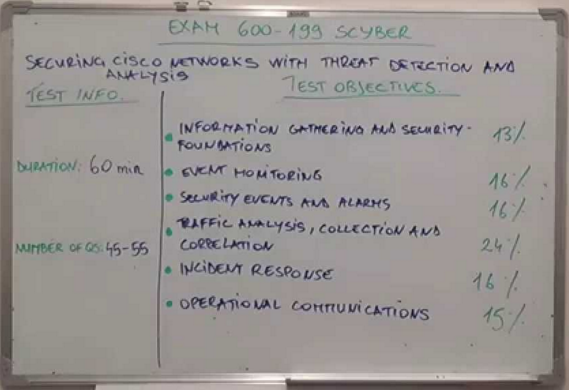 EXAM 600-199 SCYBER
SECURING CISCO NETWORKS WITH THREAT DETECTION AND
ANALYSIS
TEST INFO.
DURATION: 60 min
NUMBER OF QS: 45-55
TEST OBJECTIVES.
• INFORMATION GATHERING AND SECURITY- 13%
FOUNDATIONS
• EVENT MONITORING 16%
• SECURITY EVENTS AND ALARMS 16%
• TRAFFIC ANALYSIS, COLLECTION AND
CORRELATION 24%
• INCIDENT RESPONSE 16%
• OPERATIONAL COMMUNICATIONS 15%